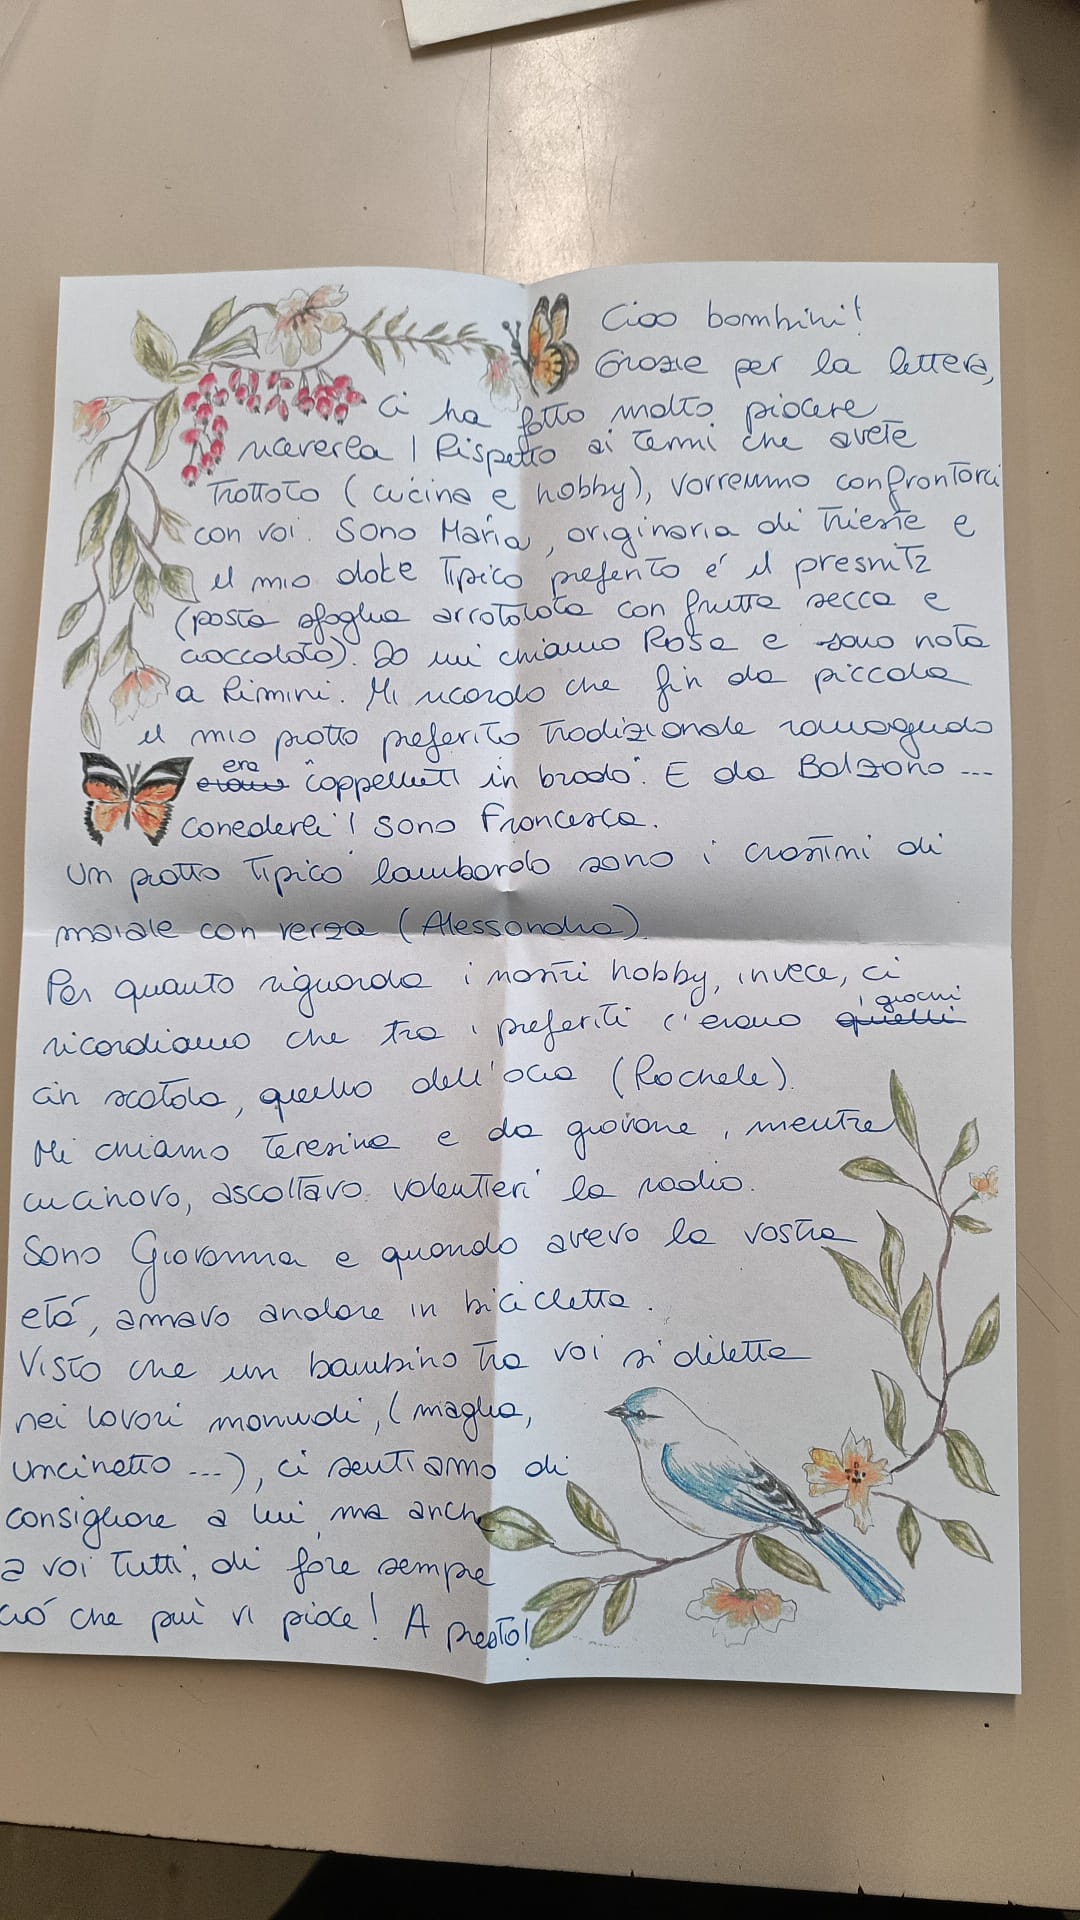 Ciao bambini!
Grazie per la lettera,
ci ha fatto molto piacere
riceverla! Rispetto ai temi che avete
trattato (cucina e hobby), vorremmo confrontarci
con voi. Sono Maria, originaria di Trieste e
il mio dolce tipico preferito é il presnitz
(pasta sfoglia arrotolata con frutta secca e
cioccolato). Io mi chiamo Rosa e sono nata
a Rimini. Mi ricordo che fin da piccola
il mio piatto preferito tradizionale romagnolo
era cappelletti in brodo. E da Bolzano ...
canederli! Sono Francesca.
Un piatto tipico lombardo sono i crostini di
maiale con verza (Alessandra).
Per quanto riguarda i nostri hobby, invece, ci
ricordiamo che tra i preferiti c'erano quelli i giochi
in scatola, quello dell'oca (Rachele).
Mi chiamo Teresina e da giovane, mentre
cucinavo, ascoltavo volentieri la radio.
Sono Giovanna e quando avevo la vostra
etá, amavo andare in bicicletta.
Visto che un bambino tra voi si diletta
nei lavori manuali, (maglia,
uncinetto ...), ci sentiamo di
consigliare a lui, ma anche
a voi tutti, di fare sempre
ció che piú vi piace! A presto!